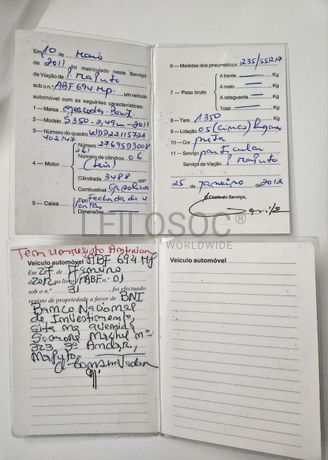 Em 10 de Maio de
2011 foi matriculado neste Serviço
de Viação de Maputo
sob o n.º ABF 694 MP. um veículo
automóvel com as seguintes características:
1 — Marca Mercedes-Benz
2 — Modelo S350-
3 — Número do quadro WDD221157
402143
4 — Motor
Número 27695
Número de cilindros 06
(seis)
Cilindrada 3488 cm³
Combustível Gasolina
5 — Caixa
Tipo Fechada de 4
portas
Dimensões
6 — Medidas dos pneumáticos 235/55R17
7 — Peso bruto
A frente kg
A meio kg
A retaguarda kg
Total kg
8 — Tara 1350
9 — Lotação 05 (cinco) lugares
10 — Cor preta
11 — Serviço particular
Serviço de Viação Maputo
25 de janeiro de 2012
O Chefe do Serviço,
LEILOSOC
WORLDWIDE
Tem
Veículo automóvel ABF 694 MP
Em 27 de Janeiro
2012 no livro ABF-01
sob o n.º 31 foi efectuado
registo de propriedade a favor de BNI
Banco Nacional
de Investimento,
sita na avenida
Samora Machel nº
323, 3º Andar,
Maputo
O Conservador
Veículo automóvel